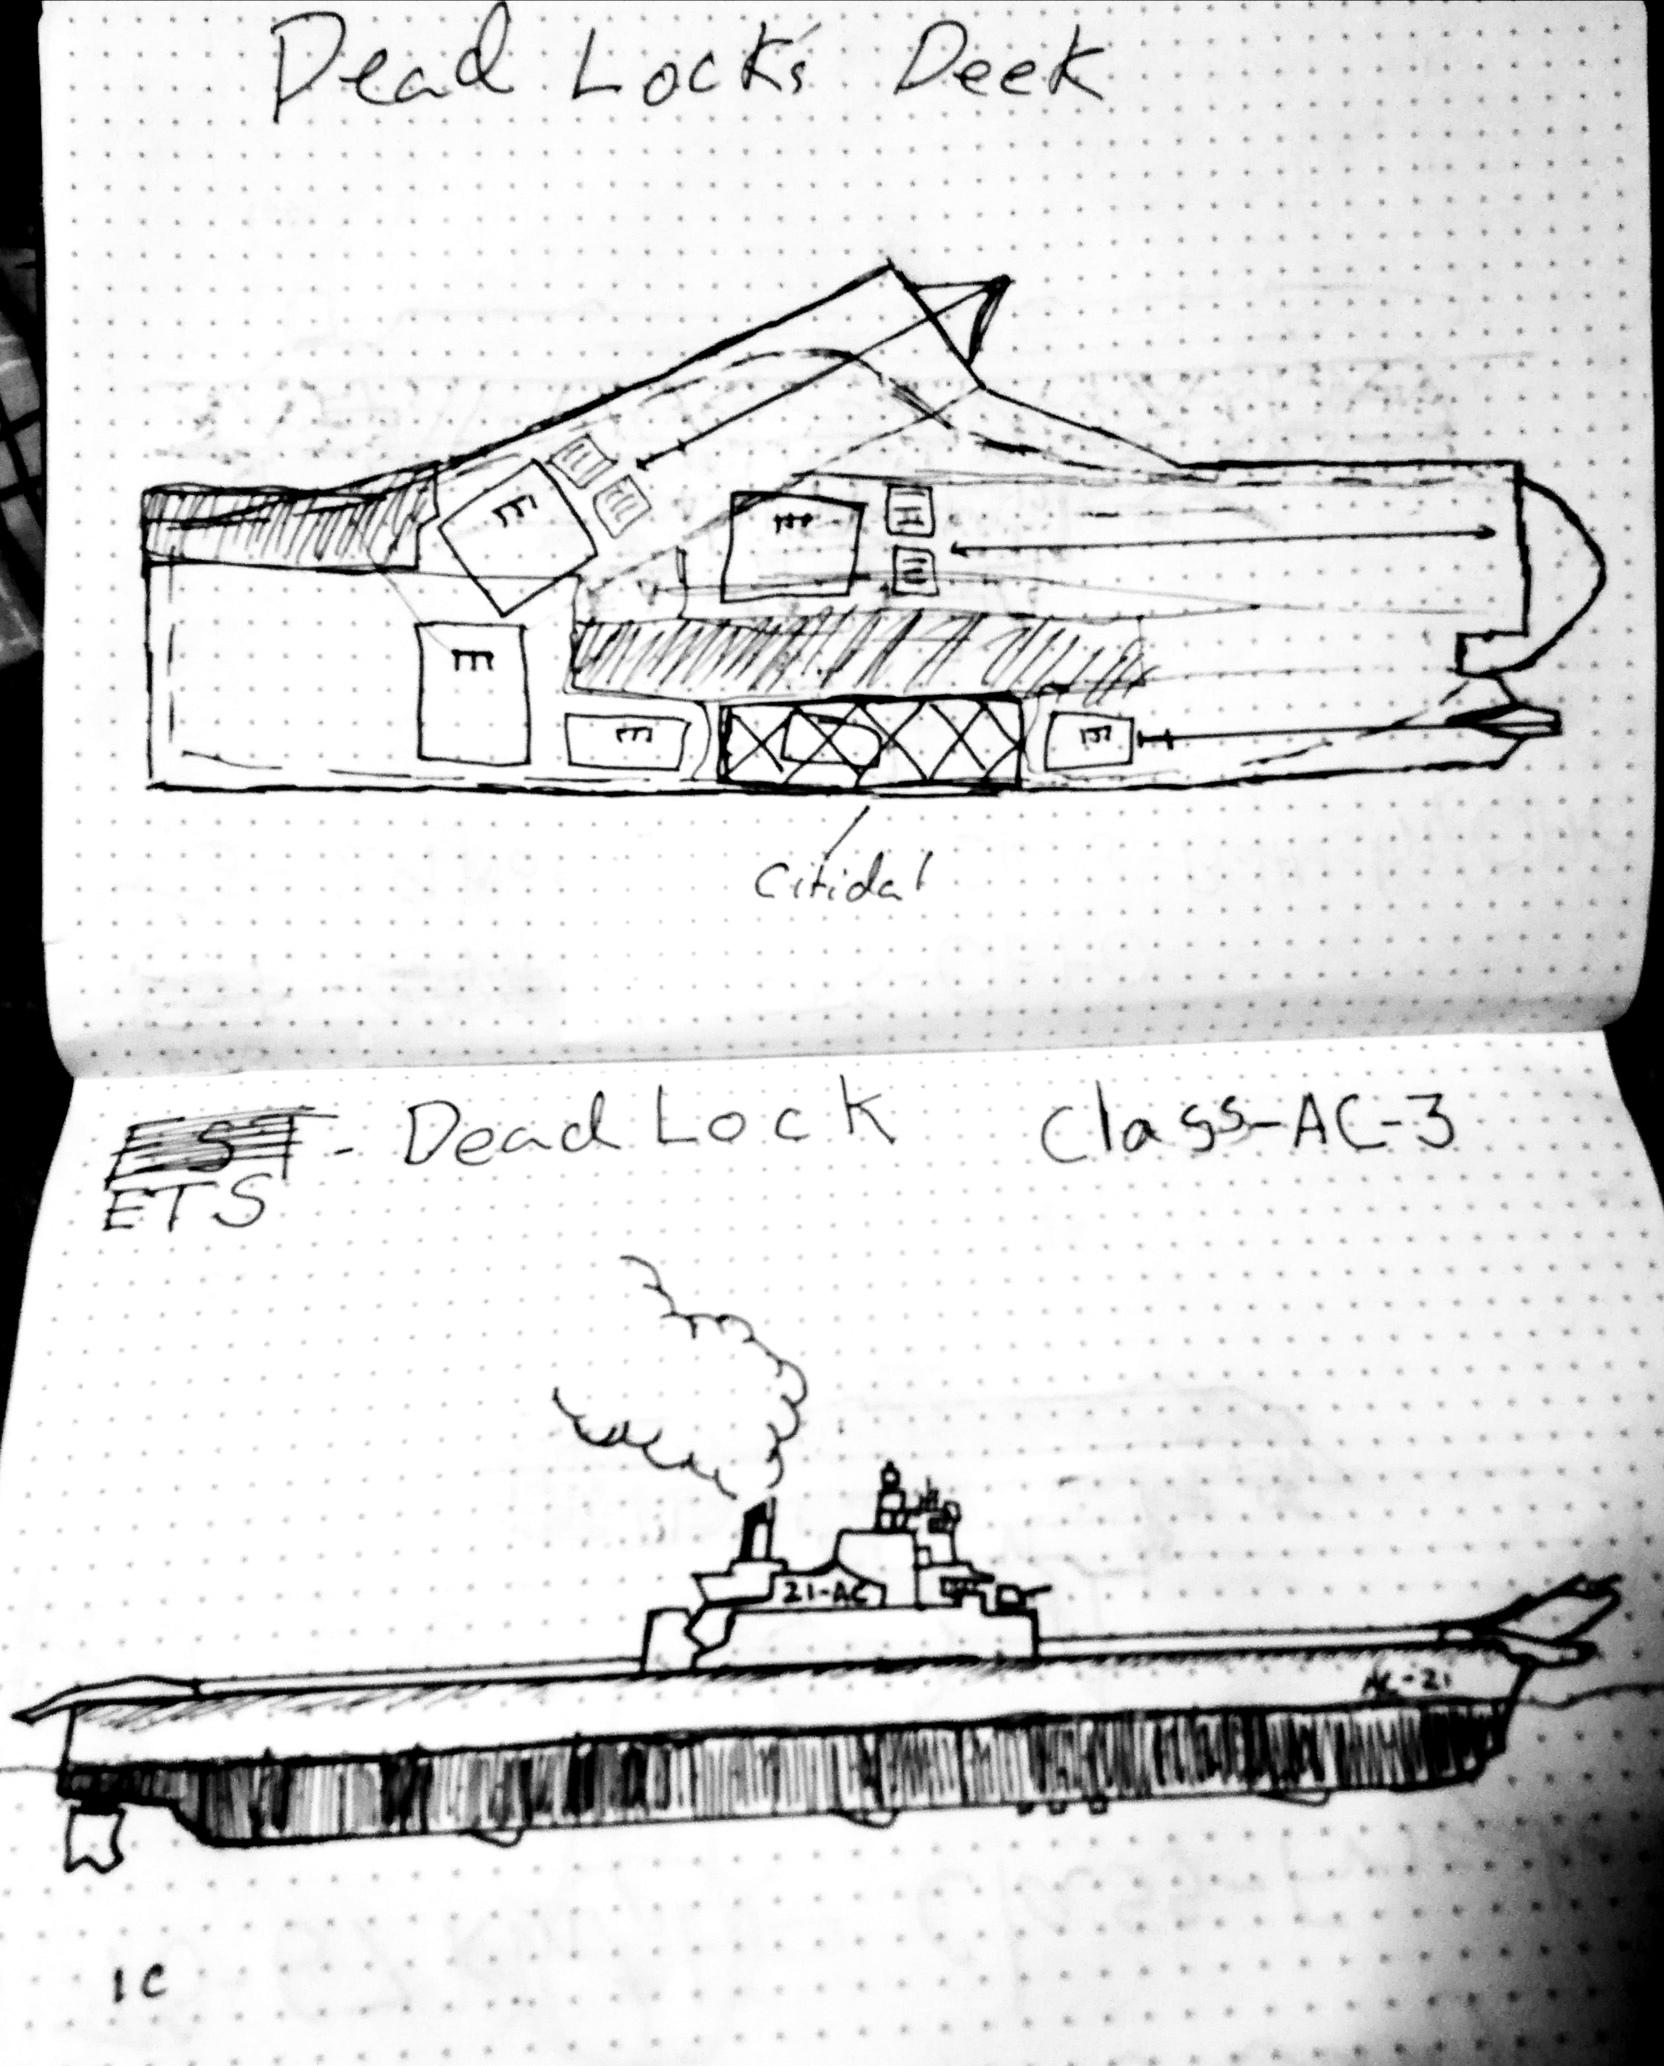 Dead Lock's Deek
E
E
E
E
E
E
E
E
E
Citidal
EST - DeadLock Class-AC-3
ETS
21-AC
AC-21
1C